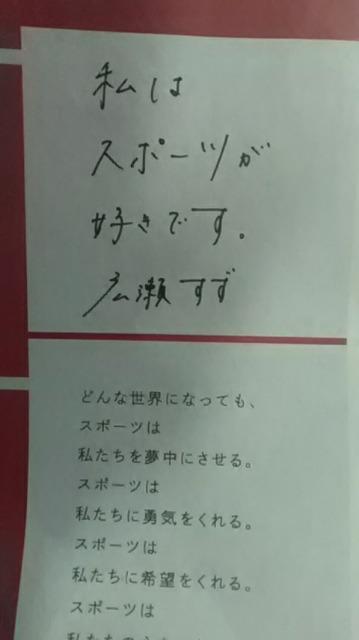 私は
スポーツが
好きです。
広瀬すず
どんな世界になっても、
スポーツは
私たちを夢中にさせる。
スポーツは
私たちに勇気をくれる。
スポーツは
私たちに希望をくれる。
スポーツは